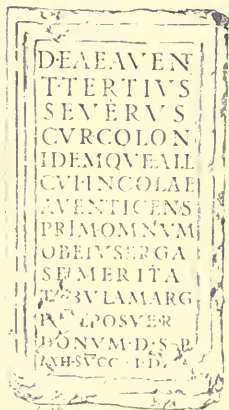 DEAE AVENT
T·TERTIVS
SEVERVS
CVR·COLON
IDEMQVE ALL
CVI·INCOLAE
AVENTICENS
PRIMO OMNVM
OB EIVS ERGA
SE MERITA
TABVLAM ARG
P L POSVER
DONVM·D·S·P